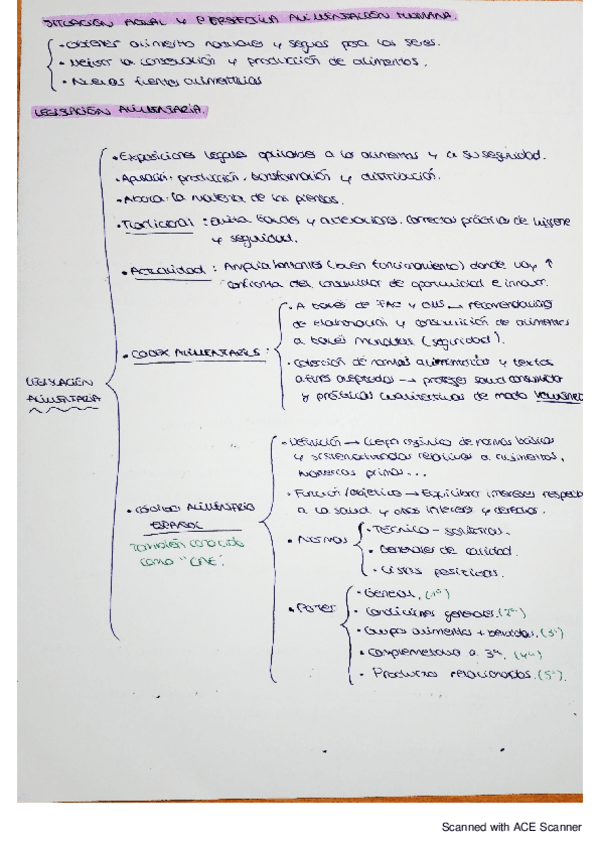 SITUACIÓN ACTUAL Y PERSPECTIVA ALIMENTACIÓN HUMANA.
· Obtener alimento normales y seguros para los seres.
· Mejorar la conservación y producción de alimentos.
· Nuevas fuentes alimenticias
LEGISLACIÓN ALIMENTARIA.
· Exposiciones legales aplicables a los alimentos y a su seguridad.
· Aplicación: producción, transformación y distribución.
· Aborda: la materia de los piensos.
· Tradicional : Evita fraudes y alteraciones. Correctas prácticas de higiene
y seguridad.
· Actualidad : Amplía (buen funcionamiento) donde hay ↑
confianza del consumidor de oportunidad e innovar.
LEGISLACIÓN
ALIMENTARIA
· CODEX ALIMENTARIUS :
· A través de FAO y OMS → recomendaciones
de elaboración y de alimentos
a través (seguridad).
· Colección de normas alimentarias y textos
afines aceptados → proteger salud consumidor
y prácticas de modo
· CÓDIGO ALIMENTARIO
ESPAÑOL
También conocido
como "CAE".
· Definición → Cuerpo orgánico de normas básicas
y sistematizadas relativas a alimentos,
materias primas...
· Función/objetivo → Equilibrar intereses respecto
a la salud y otros intereses y derechos.
· Normas
· TÉCNICO - sanitarias.
· Generales de calidad.
· Listas positivas.
· Partes
· General. (1º)
· Condiciones generales. (2º)
· Grupo alimentos + bebidas. (3º)
· Complementario a 3ª. (4º)
· Productos relacionados. (5º).
Scanned with ACE Scanner